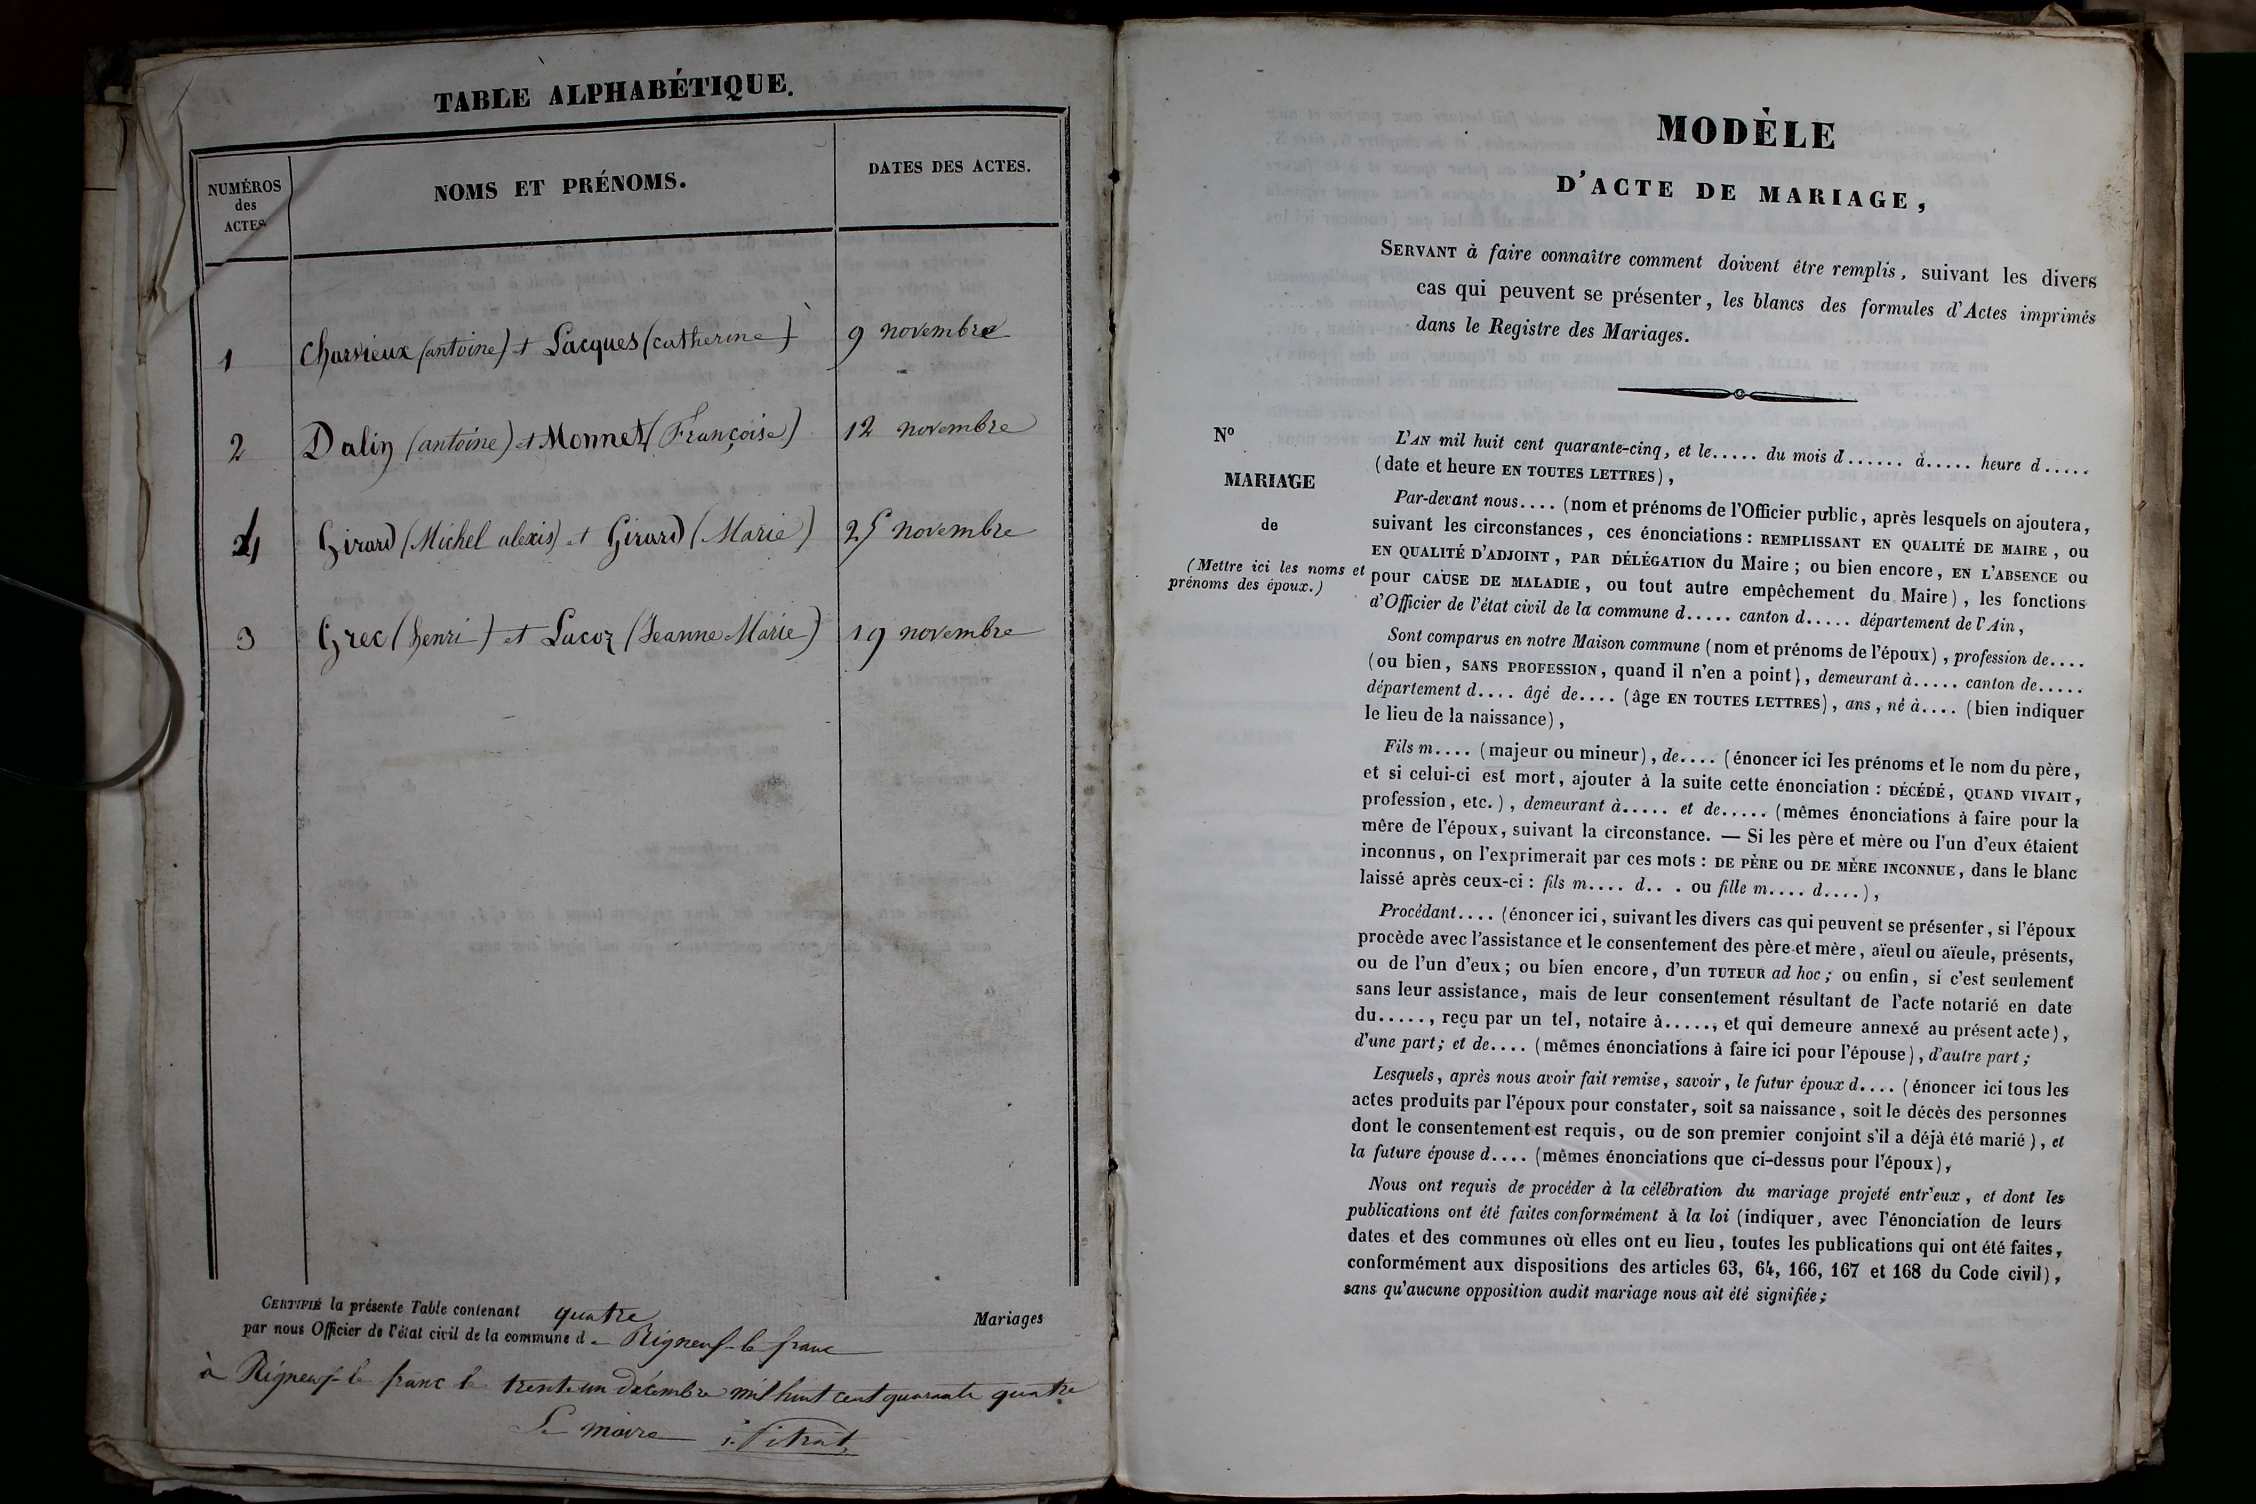 TABLE ALPHABÉTIQUE.
NUMÉROS
des
ACTES
NOMS ET PRÉNOMS.
DATES DES ACTES.
1 Charvieux (antoine) et Lacques (catherine) 9 novembre
2 Dalin (antoine) et Monnet (Françoise) 12 novembre
4 Girard (Michel alexis) et Girard (Marie) 25 novembre
3 Grec (henri) et Lacoz (Jeanne Marie) 19 novembre
CERTIFIÉ la présente Table contenant quatre Mariages
par nous Officier de l'état civil de la commune de Rigneux-le franc
à Rigneux le franc le trente un décembre mil huit cent quarante quatre
Le maire
MODÈLE
D'ACTE DE MARIAGE,
SERVANT à faire connaître comment doivent être remplis, suivant les divers
cas qui peuvent se présenter, les blancs des formules d'Actes imprimés
dans le Registre des Mariages.
No
MARIAGE
de
(Mettre ici les noms et
prénoms des époux.)
L'AN mil huit cent quarante-cinq, et le..... du mois d...... à..... heure d.....
(date et heure EN TOUTES LETTRES),
Par-devant nous.... (nom et prénoms de l'Officier public, après lesquels on ajoutera,
suivant les circonstances, ces énonciations : REMPLISSANT EN QUALITÉ DE MAIRE, ou
EN QUALITÉ D'ADJOINT, PAR DÉLÉGATION du Maire ; ou bien encore, EN L'ABSENCE ou
pour CAUSE DE MALADIE, ou tout autre empêchement du Maire), les fonctions
d'Officier de l'état civil de la commune d..... canton d..... département de l'Ain,
Sont comparus en notre Maison commune (nom et prénoms de l'époux), profession de....
(ou bien, SANS PROFESSION, quand il n'en a point), demeurant à..... canton de.....
département d.... âgé de.... (âge EN TOUTES LETTRES), ans, né à.... (bien indiquer
le lieu de la naissance),
Fils m.... (majeur ou mineur), de.... (énoncer ici les prénoms et le nom du père,
et si celui-ci est mort, ajouter à la suite cette énonciation : DÉCÉDÉ, QUAND VIVAIT,
profession, etc.), demeurant à..... et de..... (mêmes énonciations à faire pour la
mère de l'époux, suivant la circonstance. — Si les père et mère ou l'un d'eux étaient
inconnus, on l'exprimerait par ces mots : DE PÈRE ou DE MÈRE INCONNUE, dans le blanc
laissé après ceux-ci : fils m.... d.. . ou fille m.... d....),
Procédant.... (énoncer ici, suivant les divers cas qui peuvent se présenter, si l'époux
procède avec l'assistance et le consentement des père et mère, aïeul ou aïeule, présents,
ou de l'un d'eux ; ou bien encore, d'un TUTEUR ad hoc ; ou enfin, si c'est seulement
sans leur assistance, mais de leur consentement résultant de l'acte notarié en date
du....., reçu par un tel, notaire à....., et qui demeure annexé au présent acte),
d'une part ; et de.... (mêmes énonciations à faire ici pour l'épouse), d'autre part ;
Lesquels, après nous avoir fait remise, savoir, le futur époux d.... (énoncer ici tous les
actes produits par l'époux pour constater, soit sa naissance, soit le décès des personnes
dont le consentement est requis, ou de son premier conjoint s'il a déjà été marié), et
la future épouse d.... (mêmes énonciations que ci-dessus pour l'époux),
Nous ont requis de procéder à la célébration du mariage projeté entr'eux, et dont les
publications ont été faites conformément à la loi (indiquer, avec l'énonciation de leurs
dates et des communes où elles ont eu lieu, toutes les publications qui ont été faites,
conformément aux dispositions des articles 63, 64, 166, 167 et 168 du Code civil),
sans qu'aucune opposition audit mariage nous ait été signifiée ;